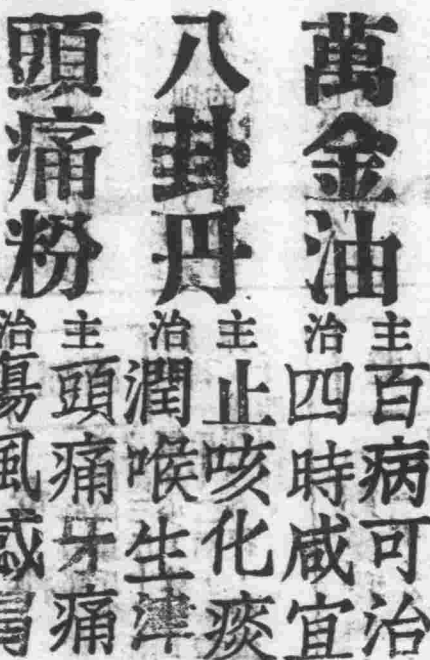 萬金油
主百病可治
治四時咸宜
八卦丹
主止咳化痰
治潤喉生津
頭痛粉
主頭痛牙痛
治傷風感冒